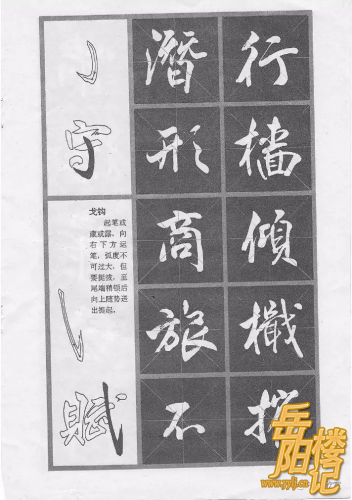 守
戈钩
起笔或
藏或露，向
右下方运
笔，弧度不
可过大，但
要挺拔，至
尾端稍顿后
向上随势送
出提起。
賦
潛形商旅不
行檣傾檝摧
岳阳楼记